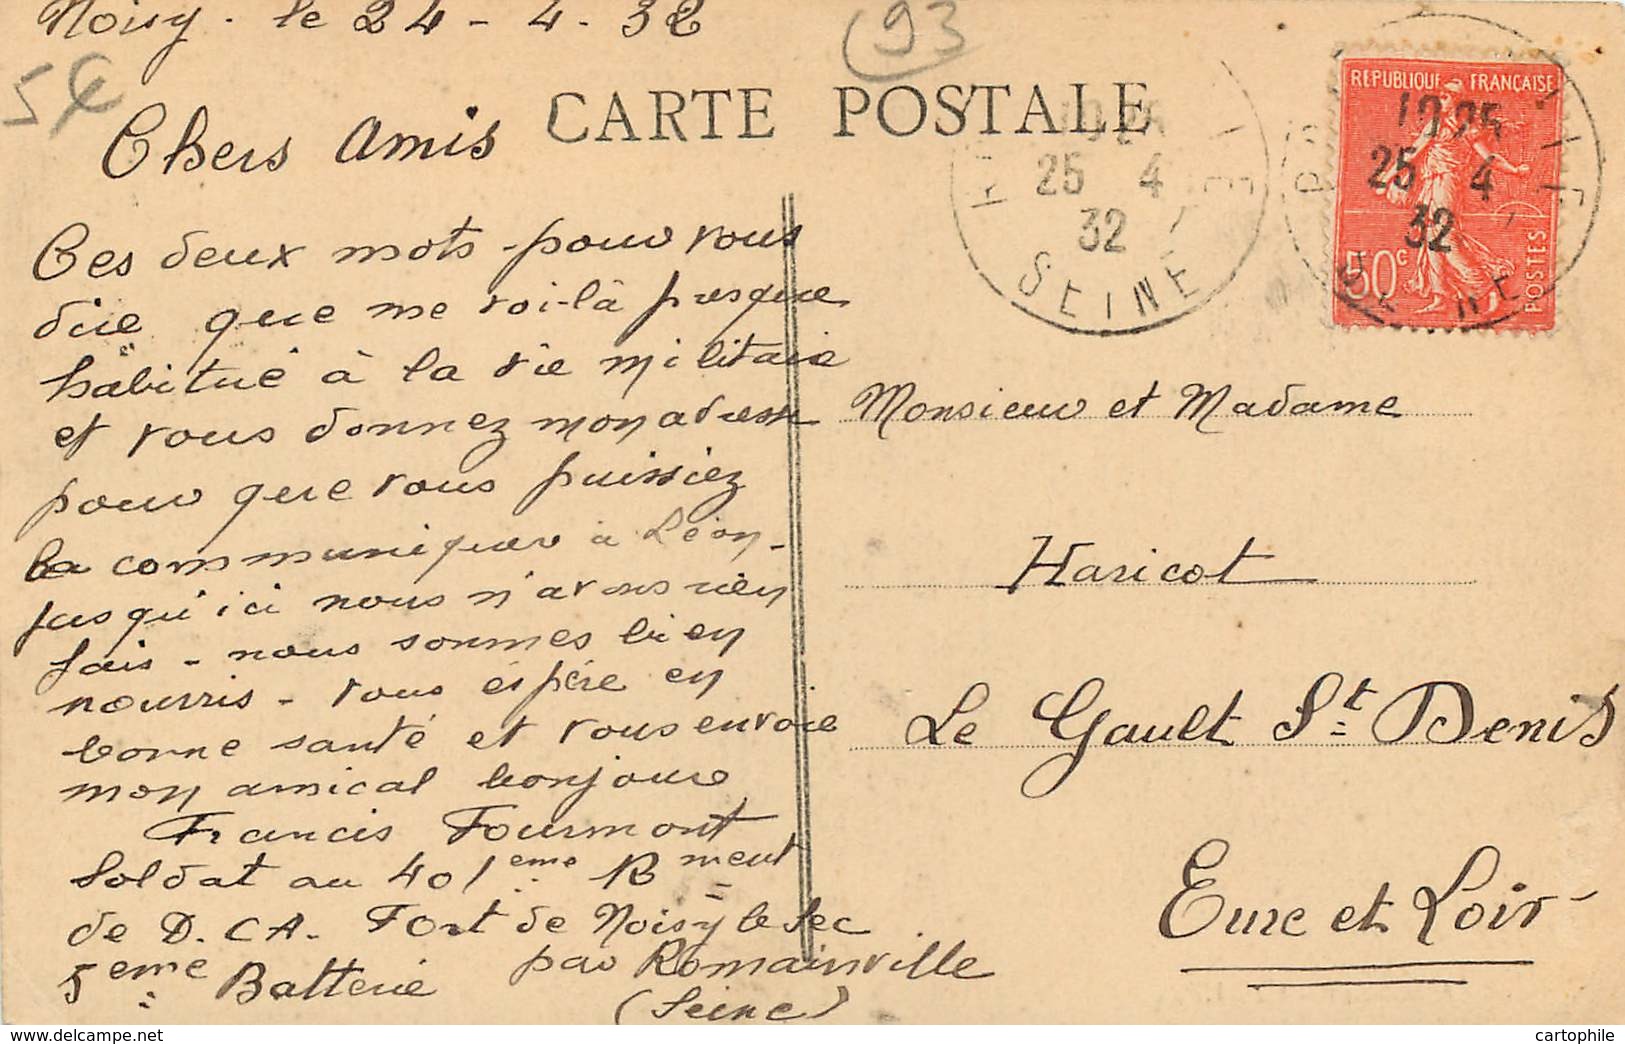 Noisy. le 24-4-32
93
5€
CARTE POSTALE
Chers Amis
Ces deux mots pour vous
dire que me voi-là presque
habitué à la vie militaire
et vous donnez mon adresse
pour que vous puissiez
la communiquer à Léon-
jusqu'ici nous n'avons rien
fais - nous sommes bien
nourris - vous éspére en
bonne santé et vous envoie
mon amical bonjour
Francis Fourmont
Soldat au 401eme Rment
de D.CA. Fort de Noisy le Sec
5eme Batterie par Romainville
(Seine)
25 4
32
SEINE
REPUBLIQUE FRANÇAISE
50c
POSTES
25 4
32
Monsieur et Madame
Haricot
Le Gault St Denis
Eure et Loir
www.delcampe.net
cartophile